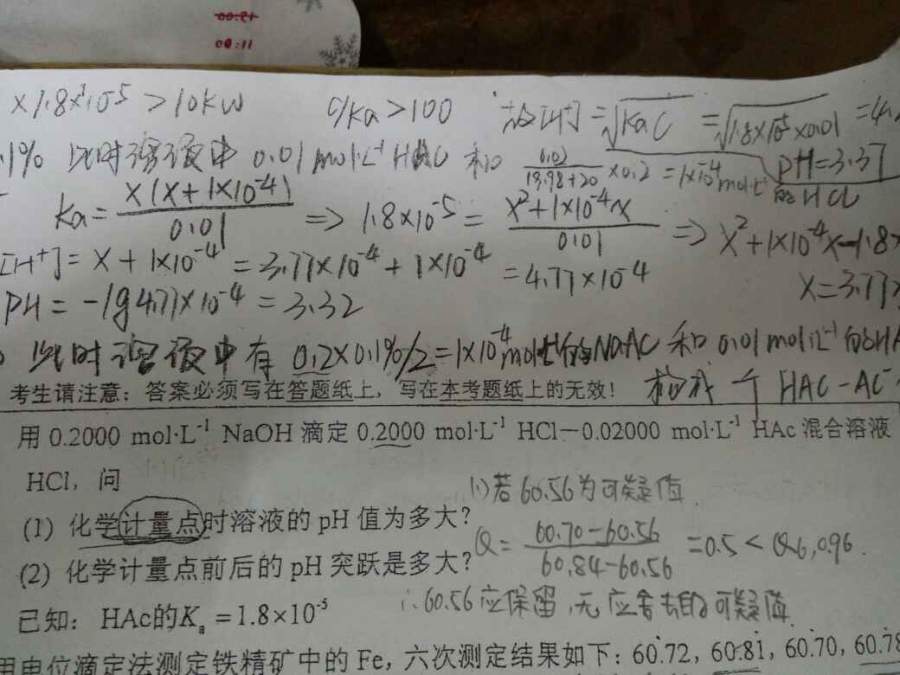 00:21
00:11
×1.8×10⁻⁵ > 10Kw c/Ka > 100 故[H⁺] = √KaC = √1.8×10⁻⁵×0.01 = 4.
.1% 此时溶液中 0.01 mol·L⁻¹ HAC 和 0.02/(19.98+20) ×0.2 = 1×10⁻⁴ mol·L⁻¹ PH=3.37
的HCl
Ka = X(X+1×10⁻⁴)/0.01 ⇒ 1.8×10⁻⁵ = X²+1×10⁻⁴X/0.01 ⇒ X²+1×10⁻⁴X-1.8×
[H⁺] = X + 1×10⁻⁴ = 3.77×10⁻⁴ + 1×10⁻⁴ = 4.77×10⁻⁴ X=3.77×
PH = -lg4.77×10⁻⁴ = 3.32
此时溶液中有 0.2×0.1%/2=1×10⁻⁴mol·L⁻¹的NaAC 和 0.01 mol·L⁻¹的HA
考生请注意：答案必须写在答题纸上，写在本考题纸上的无效！ 构成一个 HAC-AC⁻
用 0.2000 mol·L⁻¹ NaOH 滴定 0.2000 mol·L⁻¹ HCl－0.02000 mol·L⁻¹ HAc 混合溶液
HCl，问
(1)若60.56为可疑值
(1) 化学计量点时溶液的 pH 值为多大？
Q = 60.70-60.56/60.84-60.56 = 0.5 < Q6,0.96.
(2) 化学计量点前后的 pH 突跃是多大？
∴60.56应保留,无应舍去的可疑值
已知： HAc的Kₐ =1.8×10⁻⁵
用电位滴定法测定铁精矿中的 Fe，六次测定结果如下：60.72，60.81，60.70，60.78